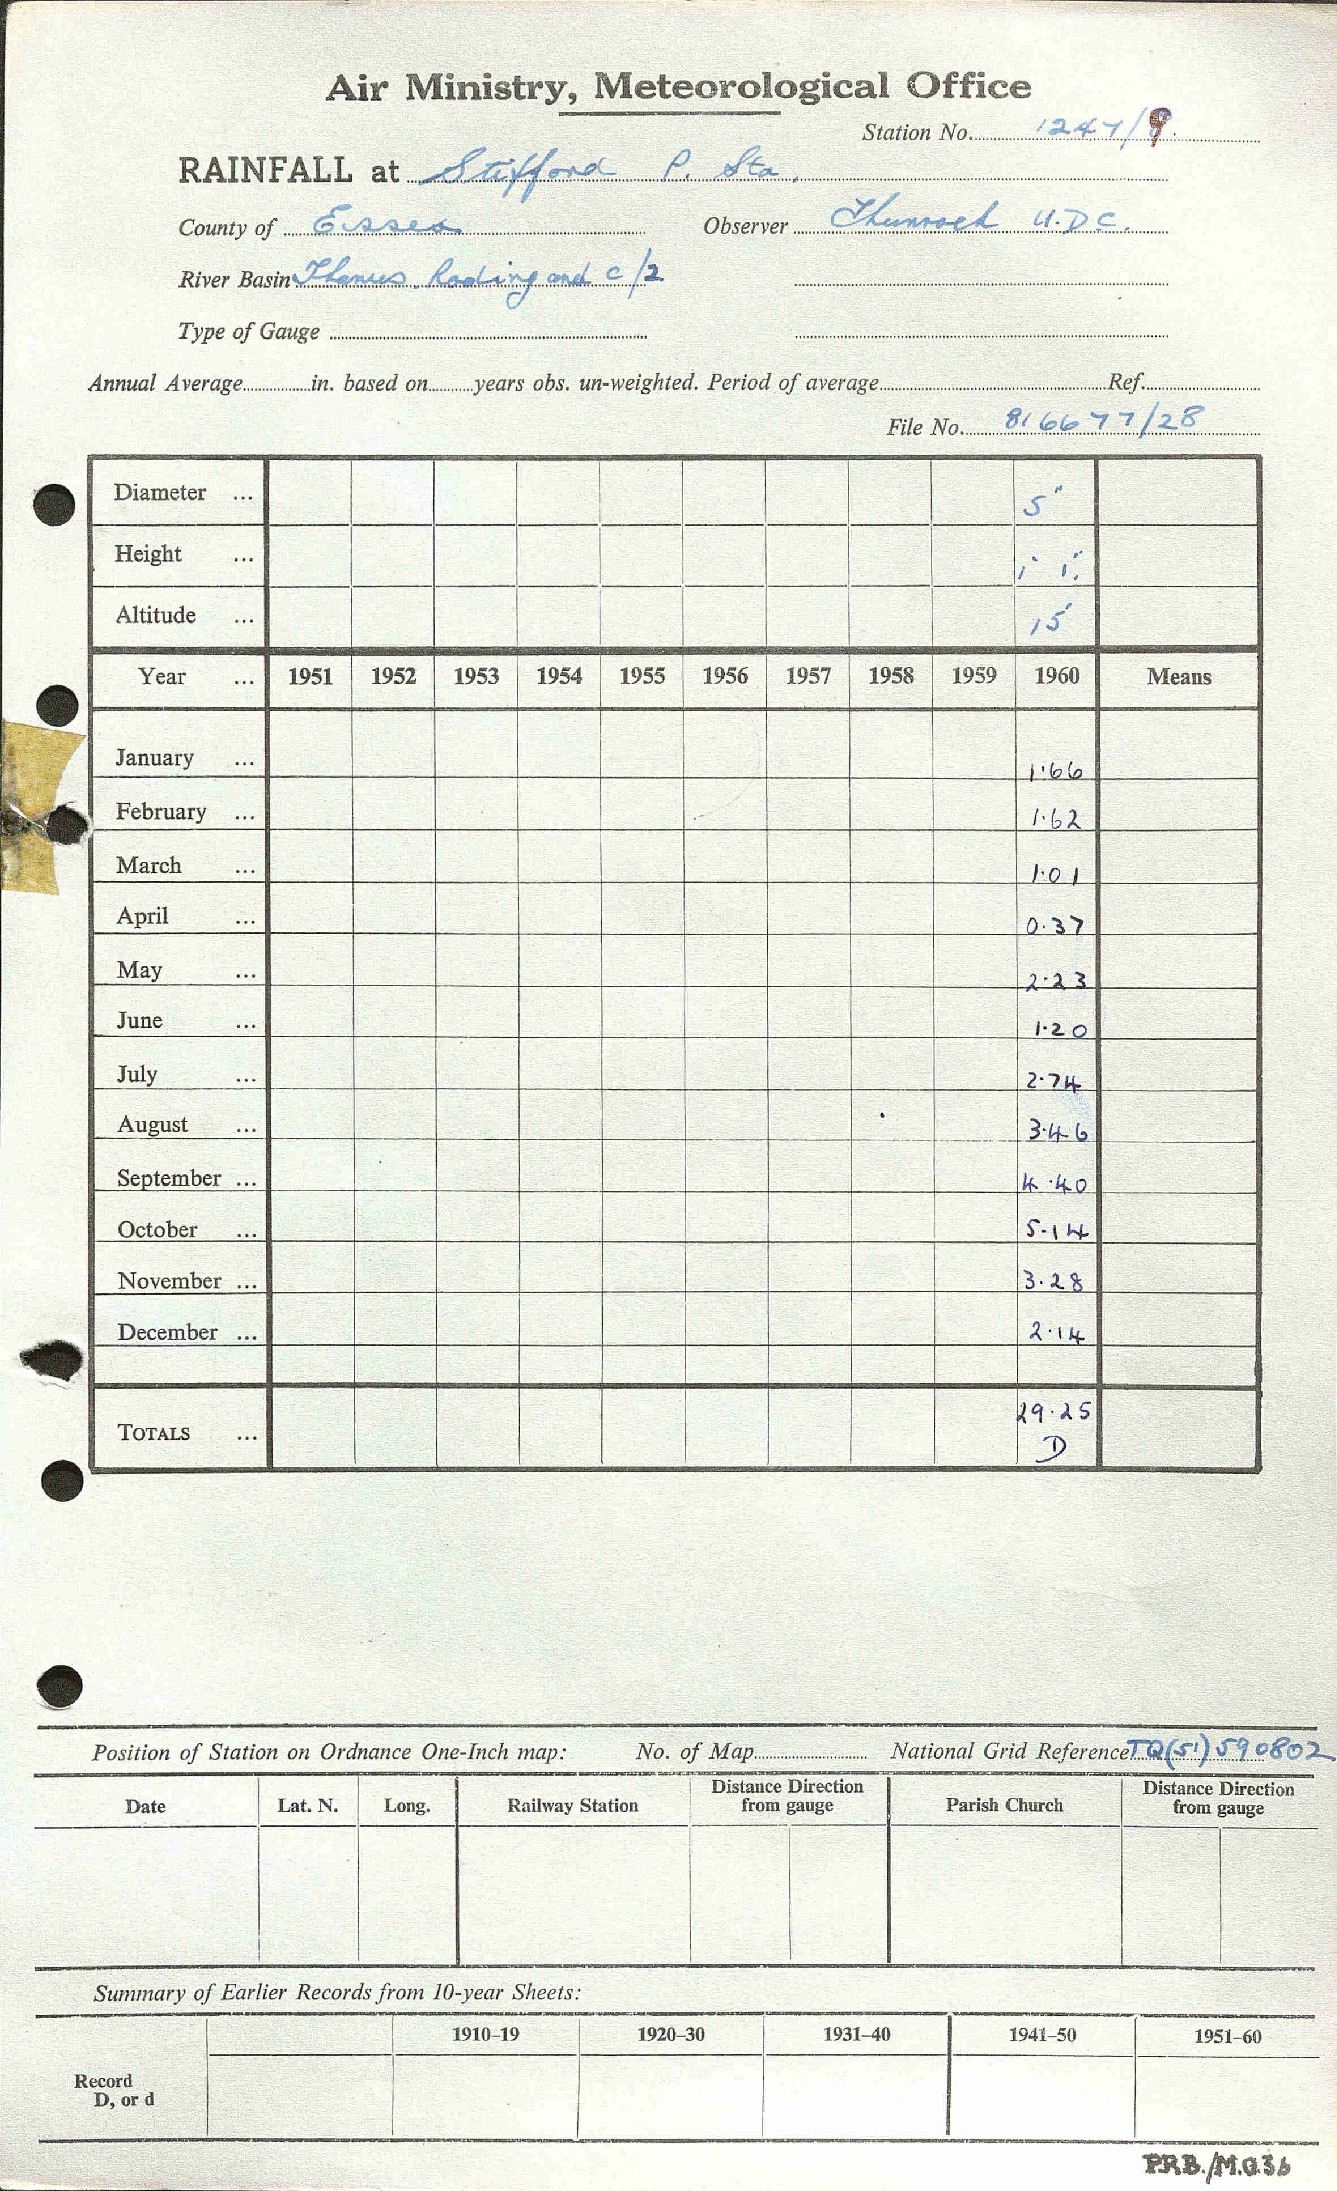 Air Ministry, Meteorological Office
Station No. 1247/9.
RAINFALL at Stifford P. Sta.
County of Essex Observer Thurrock U.D.C.
River Basin Thames. Roding and C/2
Type of Gauge
Annual Average in. based on years obs. un-weighted. Period of average Ref.
File No. 816677/28
Diameter ... 5"
Height ... 1' 1"
Altitude ... 15'
Year ... 1951 1952 1953 1954 1955 1956 1957 1958 1959 1960 Means
January ... 1.66
February ... 1.62
March ... 1.01
April ... 0.37
May ... 2.23
June ... 1.20
July ... 2.74
August ... 3.46
September ... 4.40
October ... 5.14
November ... 3.28
December ... 2.14
TOTALS ... 29.25
D
Position of Station on Ordnance One-Inch map: No. of Map National Grid Reference TQ(51)590802
Date Lat. N. Long. Railway Station Distance Direction from gauge Parish Church Distance Direction from gauge
Summary of Earlier Records from 10-year Sheets:
1910–19 1920–30 1931–40 1941–50 1951–60
Record
D, or d
P.R.B./M.O.36